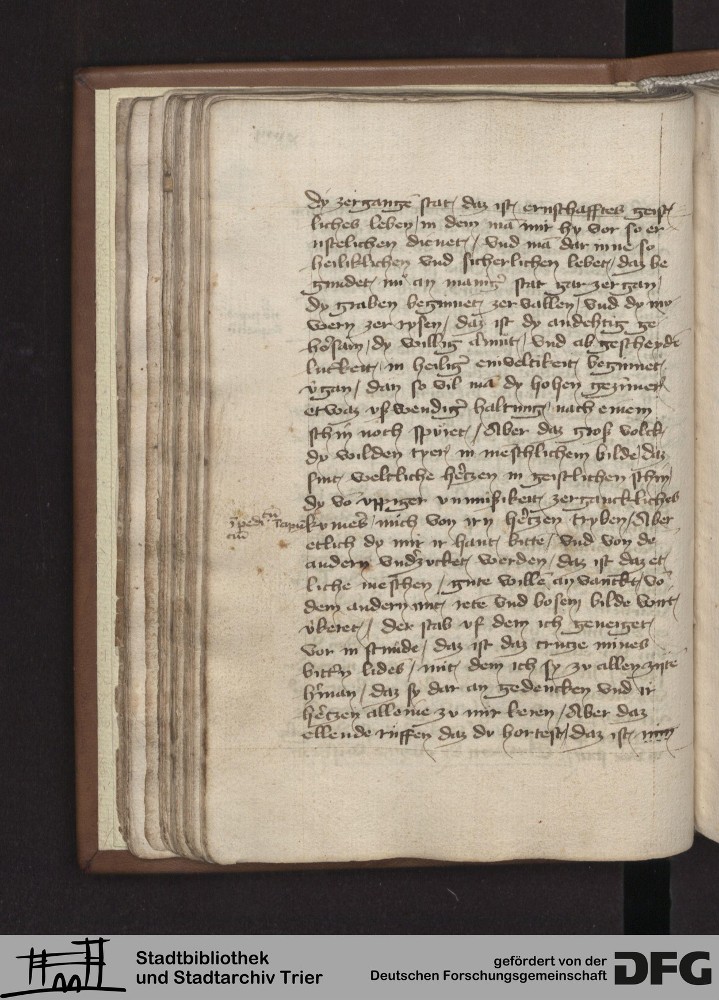 dy zergange stat / daz ist ernschafftes geist
liches leben / in dem ma mir hy vor so er
nstelichen dienet / vnd ma dar inne so
heiliklichen vnd sicherlichen lebet / daz be
gindet nu an manig stat gar zergan /
dy graben beginnet zervallen / vnd dy mu
wern zer rysen / daz ist dy andehtig ge
horsam / dy willig armut / vnd ab gescheyde
lutkeit in heilig einveltikeit beginnet
zergan / dan so vil ma dy hohen gezimer
etwaz vswendig haltung nach einem
schin noch spuret / Aber daz gros volck
dy wilden tyer in meschlichem bilde / daz
sint weltliche hertzen in geistlichen schin /
dy vo vppiger vnmusikeit zergancklicher
mich von irn hertzen tryben / Aber
etlich dy mir ir hant bitte / vnd von de
andern vnd zucket werden / daz ist daz et
liche meschen / gute wille an vanckt / vo
dem andern mit rete vnd bosem bilde wirt
vkeret / der stab vf dem ich geneiget
vor in stunde / daz ist daz crutze mines
bittern lides / mit dem ich sy zu allen zyte
herman / daz sy dar an gedencken vnd ir
hertzen alleine zu mir keren / Aber daz
ellende ruffen daz du hortest / daz ist min
Stadtbibliothek
und Stadtarchiv Trier
gefördert von der
Deutschen Forschungsgemeinschaft
DFG